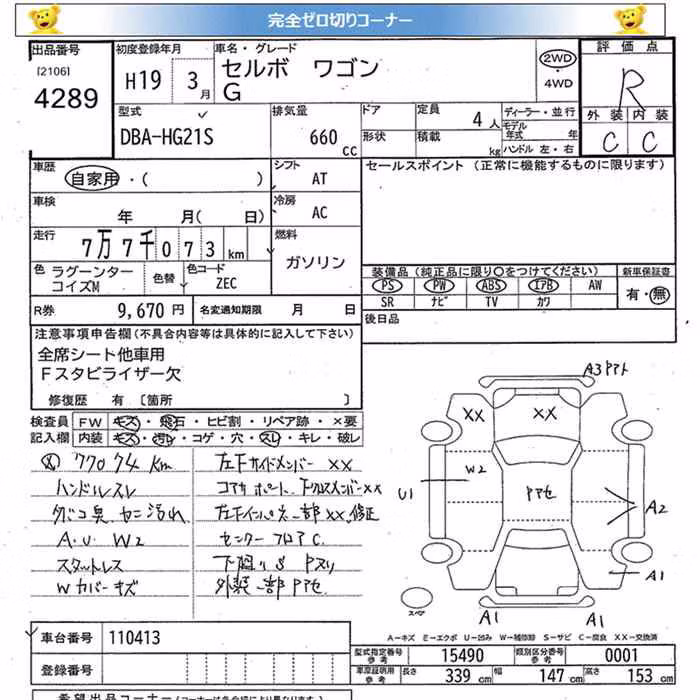 完全ゼロ切りコーナー
出品番号 初度登録年月 車名・グレード 評価点
[2106] 4289 H19 3月 セルボ ワゴン G 2WD ・4WD R
外装 内装 C C
型式 排気量 ドア 定員 4人 ディーラー・並行
DBA-HG21S 660cc 形状 積載 kg モデル年式 年 ハンドル 左・右
車歴 自家用・( ) シフト AT セールスポイント (正常に機能するものに限ります)
車検 年 月( 日) 冷房 AC
走行 7万7千073km 燃料 ガソリン
色 ラグーンターコイズM 色替 色コード ZEC
装備品(純正品に限り○をつけてください) 新車保証書
PS PW ABS エアB AW 有・無
SR ナビ TV カワ
R券 9,670円 名変通知期限 月 日
後日品
注意事項申告欄(不具合内容等は具体的に記入して下さい)
全席シート他車用
Fスタビライザー欠
修復歴 有 〔箇所 〕
検査員 FW キズ・飛石・ヒビ割・リペア跡・×要
記入欄 内装 キズ・汚レ・コゲ・穴・スレ・キレ・破レ
77074km 左Fサイドメンバー XX
ハンドルスレ コアサポート FクロスメンバーXX
タバコ臭 左Fインパネ一部XX、修正
A.U W2 センターフロアC
スタットレス 下廻りS Pスリ
Wカバーキズ 外装一部Pアセ
A3
XX XX
W2
U1
Pアセ
A2
A1
スペア
A1 A1
A-キズ E-エクボ U-凹み W-補修跡 S-サビ C-腐食 XX-交換済
車台番号 110413
登録番号
型式指定番号参考 15490 類別区分番号参考 0001
車庫証明用参考 長さ 339cm 幅 147cm 高さ 153cm
希望出品コーナー